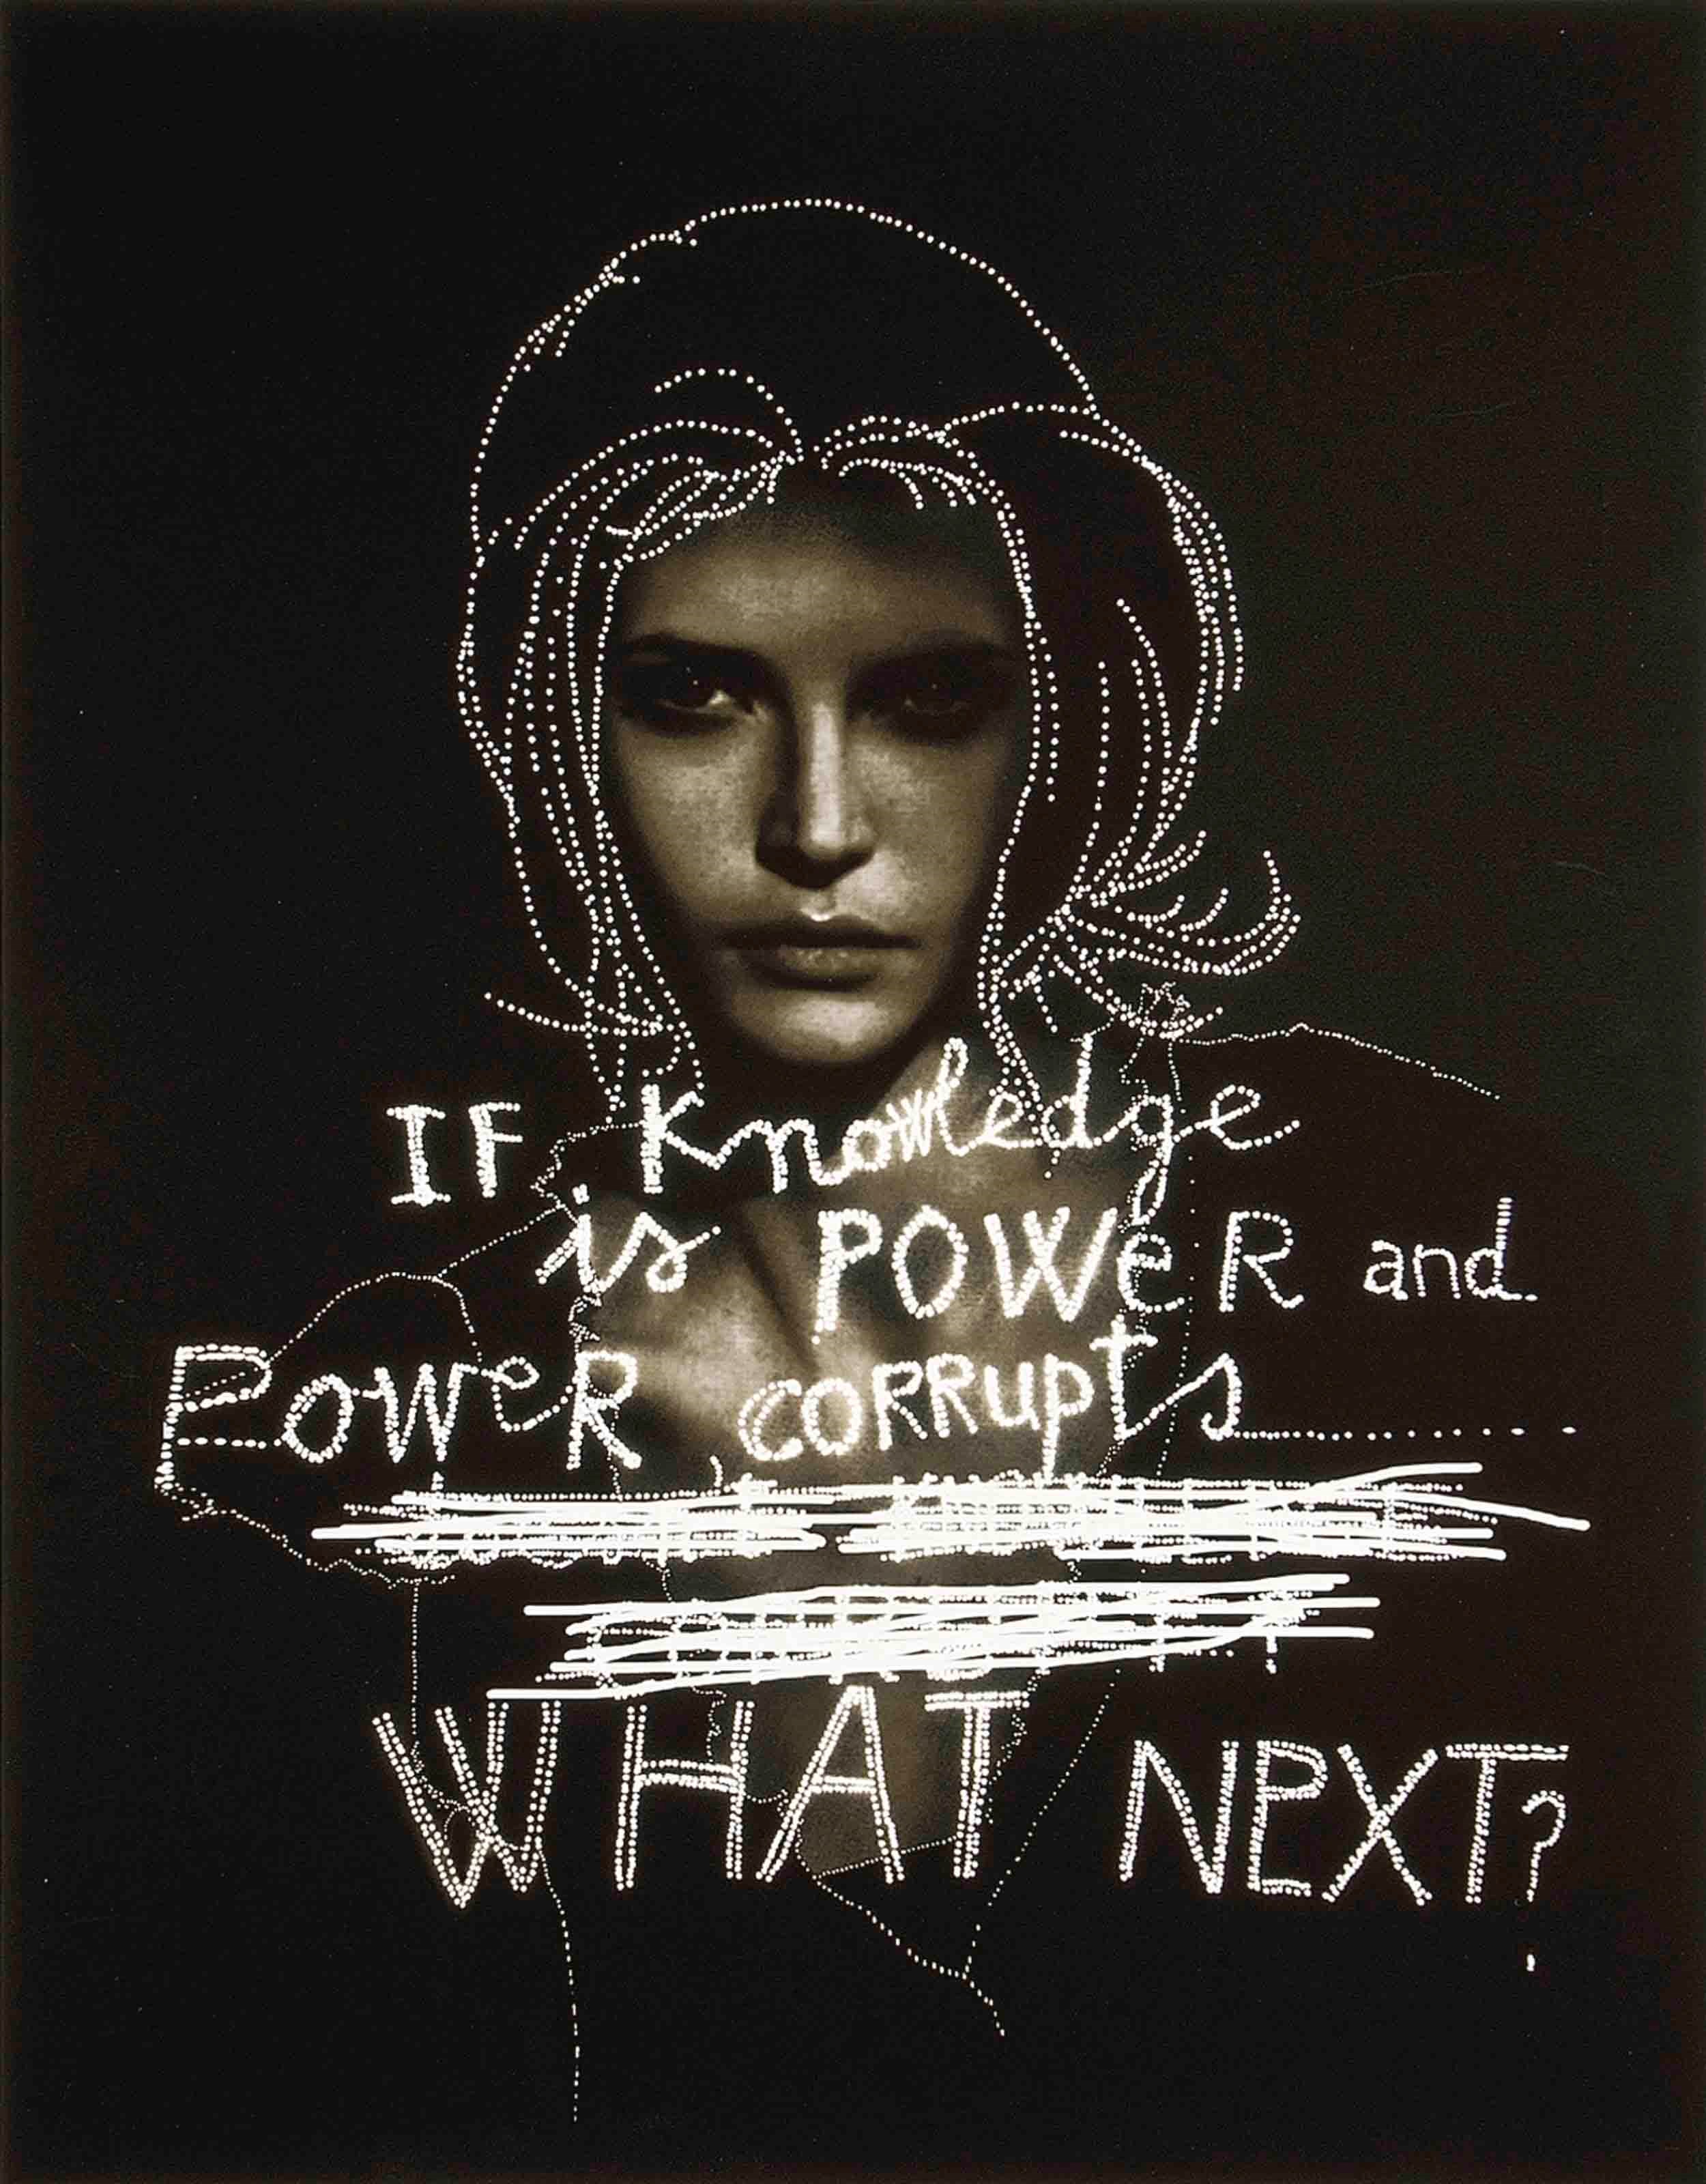 IF Knowledge
is POWeR and
PoweR coRRupts..........
WHAT NEXT?